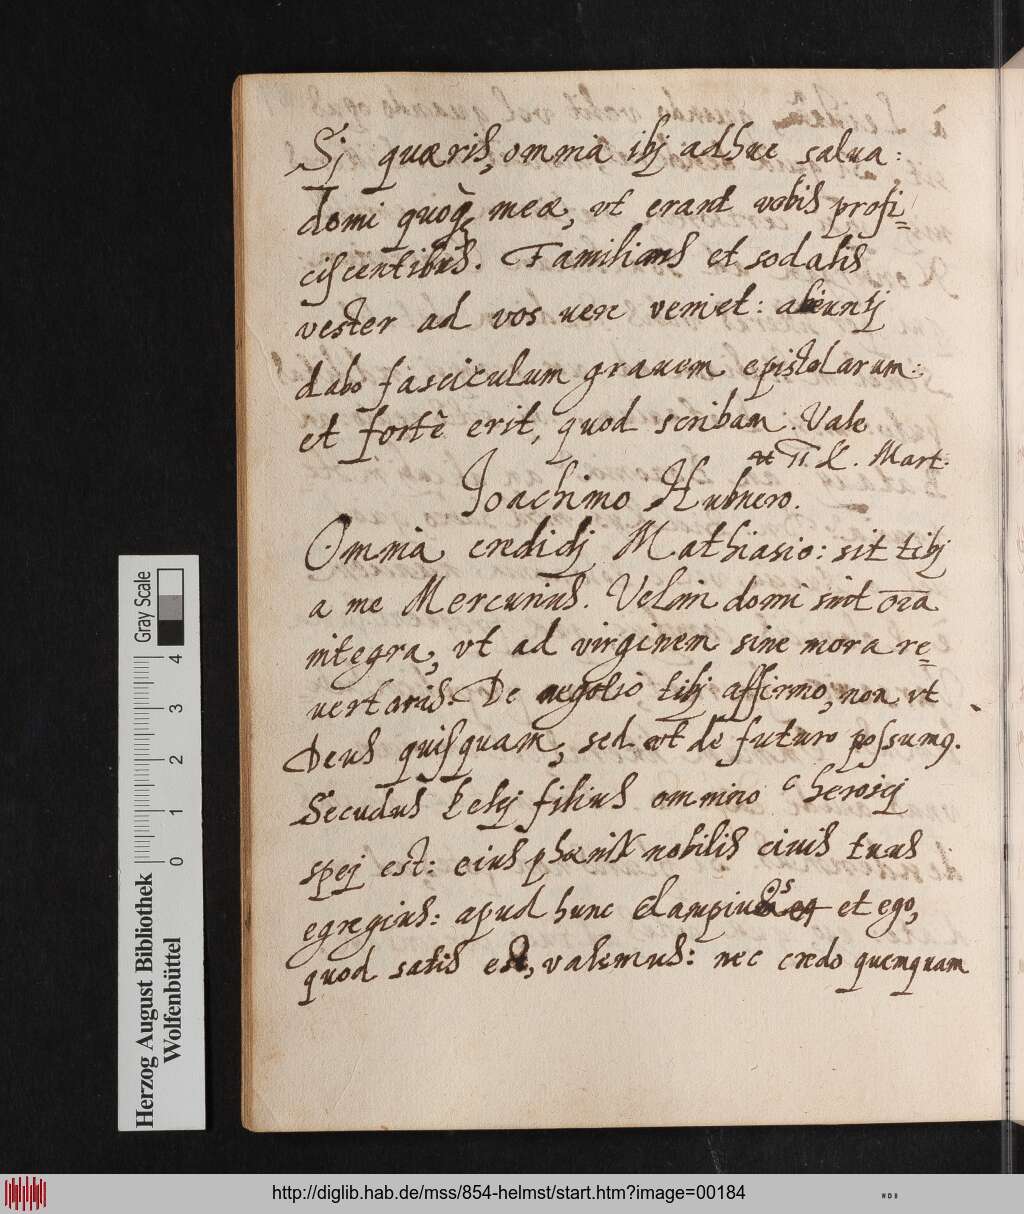 Sj quæris, omnia ibj adhuc salua:
domi quoq; meæ, vt erant vobis profi=
ciscentibus. Familiaris et sodalis
vester ad vos uere veniet: abeuntj
dabo fasciculum grauem epistolarum:
et fortè erit, quod scribam. Vale
Mart.
Joachimo Hubnero.
Omnia credidj Mathiasio: sit tibj
a me Mercurius. Velim domi sint oĩa
integra, vt ad virginem sine mora re=
uertaris. De negotio tibj affirmo, non vt
Deus quisquam, sed vt de futuro possumq.
Secudus filius omnino heroicj
spej est: eius nobilis ciuis tuus
egregius: apud hunc et ego,
quod satis est, valemus: nec credo quemquam
Gray Scale
4
3
2
1
0
Herzog August Bibliothek
Wolfenbüttel
http://diglib.hab.de/mss/854-helmst/start.htm?image=00184